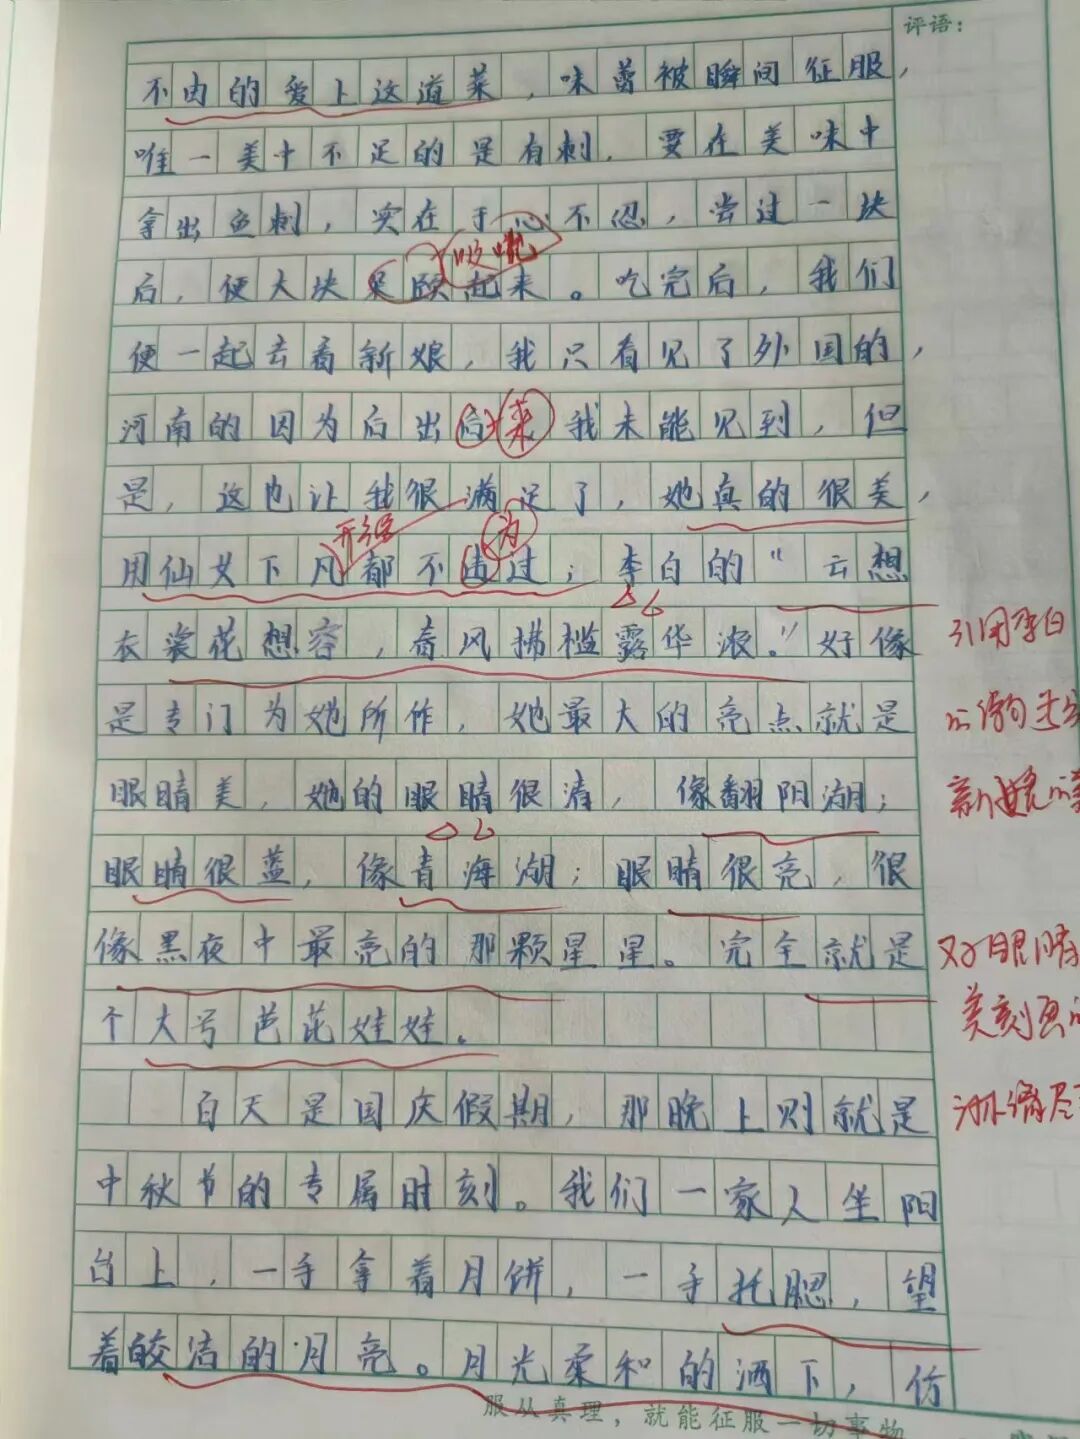 评语：
不由的爱上这道菜，味蕾被瞬间征服，
唯一美中不足的是有刺，要在美味中
拿出鱼刺，实在于心不忍，尝过一块
吃
后，便大块朵颐起来。吃完后，我们
便一起去看新娘，我只看见了外国的，
河南的因为后出后来我未能见到，但
是，这也让我很满足了，她真的很美，
形容 为
用仙女下凡都不过；李白的“云想
衣裳花想容，春风拂槛露华浓。”好像
引用李白
是专门为她所作，她最大的亮点就是
的诗句
眼睛美，她的眼睛很清，像翻阳湖；
新娘的
眼睛很蓝，像青海湖；眼睛很亮，很
像黑夜中最亮的那颗星星。完全就是
对眼睛
个大号芭芘娃娃。
美刻画的
白天是国庆假期，那晚上则就是
淋漓尽
中秋节的专属时刻。我们一家人坐阳
台上，一手拿着月饼，一手托腮，望
着皎洁的月亮。月光柔和的洒下，仿
服从真理，就能征服一切事物